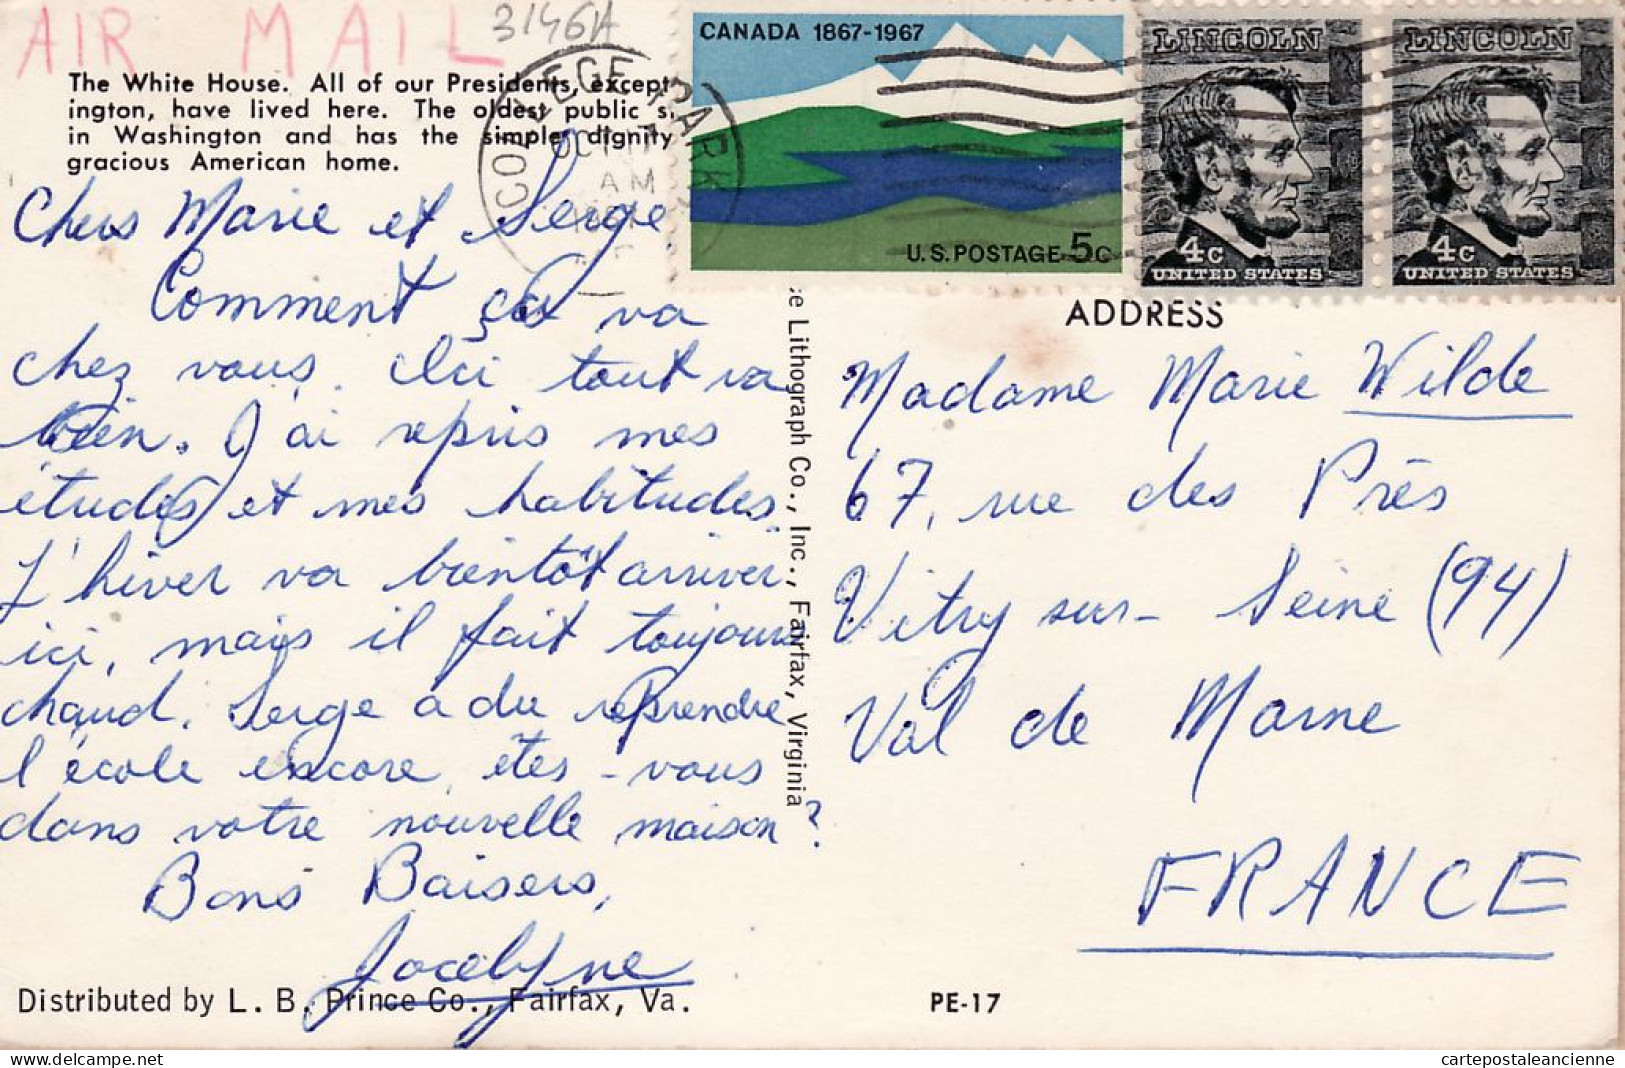 AIR MAIL
3146A
The White House. All of our Presidents, except
ington, have lived here. The oldest public
in Washington and has the simple dignity
gracious American home.
COLLEGE PARK
OCT
AM
CANADA 1867-1967
U.S. POSTAGE 5c
LINCOLN
4c
UNITED STATES
LINCOLN
4c
UNITED STATES
Chers Marie et Serge,
Comment ça va
chez vous. Ici tout va
bien. J'ai repris mes
études et mes habitudes.
L'hiver va bientôt arriver
ici, mais il fait toujours
chaud. Serge a du reprendre
l'école encore, êtes-vous
dans votre nouvelle maison?
Bons Baisers,
Jocelyne
Distributed by L. B. Prince Co., Fairfax, Va.
Lithograph Co., Inc., Fairfax, Virginia
ADDRESS
Madame Marie Wilde
67, rue des Près
Vitry sur-Seine (94)
Val de Marne
FRANCE
PE-17
cartepostaleancienne